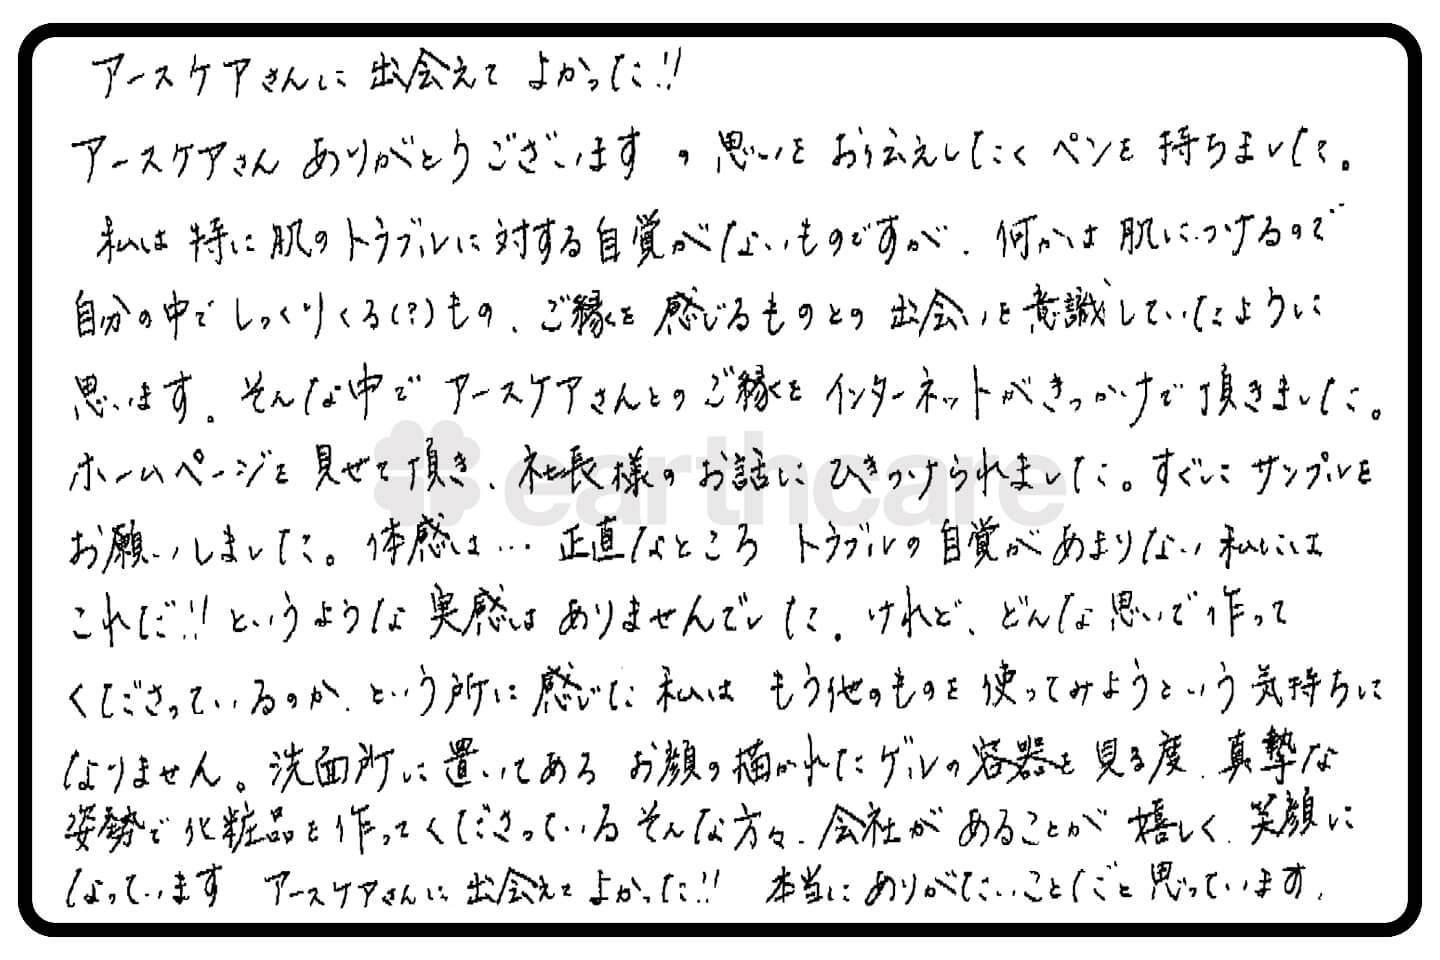 アースケアさんに出会えてよかった!!
アースケアさんありがとうございますの思いをお伝えしたくペンを持ちました。
私は特に肌のトラブルに対する自覚がないものですが、何かは肌につけるので
自分の中でしっくりくる(?)もの、ご縁を感じるものとの出会いを意識していたように
思います。そんな中でアースケアさんとのご縁をインターネットがきっかけで頂きました。
ホームページを見せて頂き、社長様のお話にひきつけられました。すぐにサンプルを
お願いしました。体感は…正直なところトラブルの自覚があまりない私には
これだ!!というような実感はありませんでした。けれど、どんな思いで作って
くださっているのか、という所に感じた私はもう他のものを使ってみようという気持ちに
なりません。洗面所に置いてあるお顔の描かれたゲルの容器を見る度、真摯な
姿勢で化粧品を作ってくださっているそんな方々、会社があることが嬉しく、笑顔に
なっています アースケアさんに出会えてよかった!! 本当にありがたいことだと思っています。
earthcare